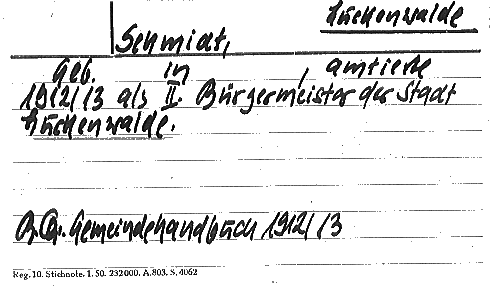 Luckenwalde
Schmidt,
geb. in , amtierte
1912/13 als II. Bürgermeister der Stadt
Luckenwalde.
Gemeindehandbuch 1912/13
Reg. 10. Stichnote. 1. 50. 232000. A. 803. S. 4062